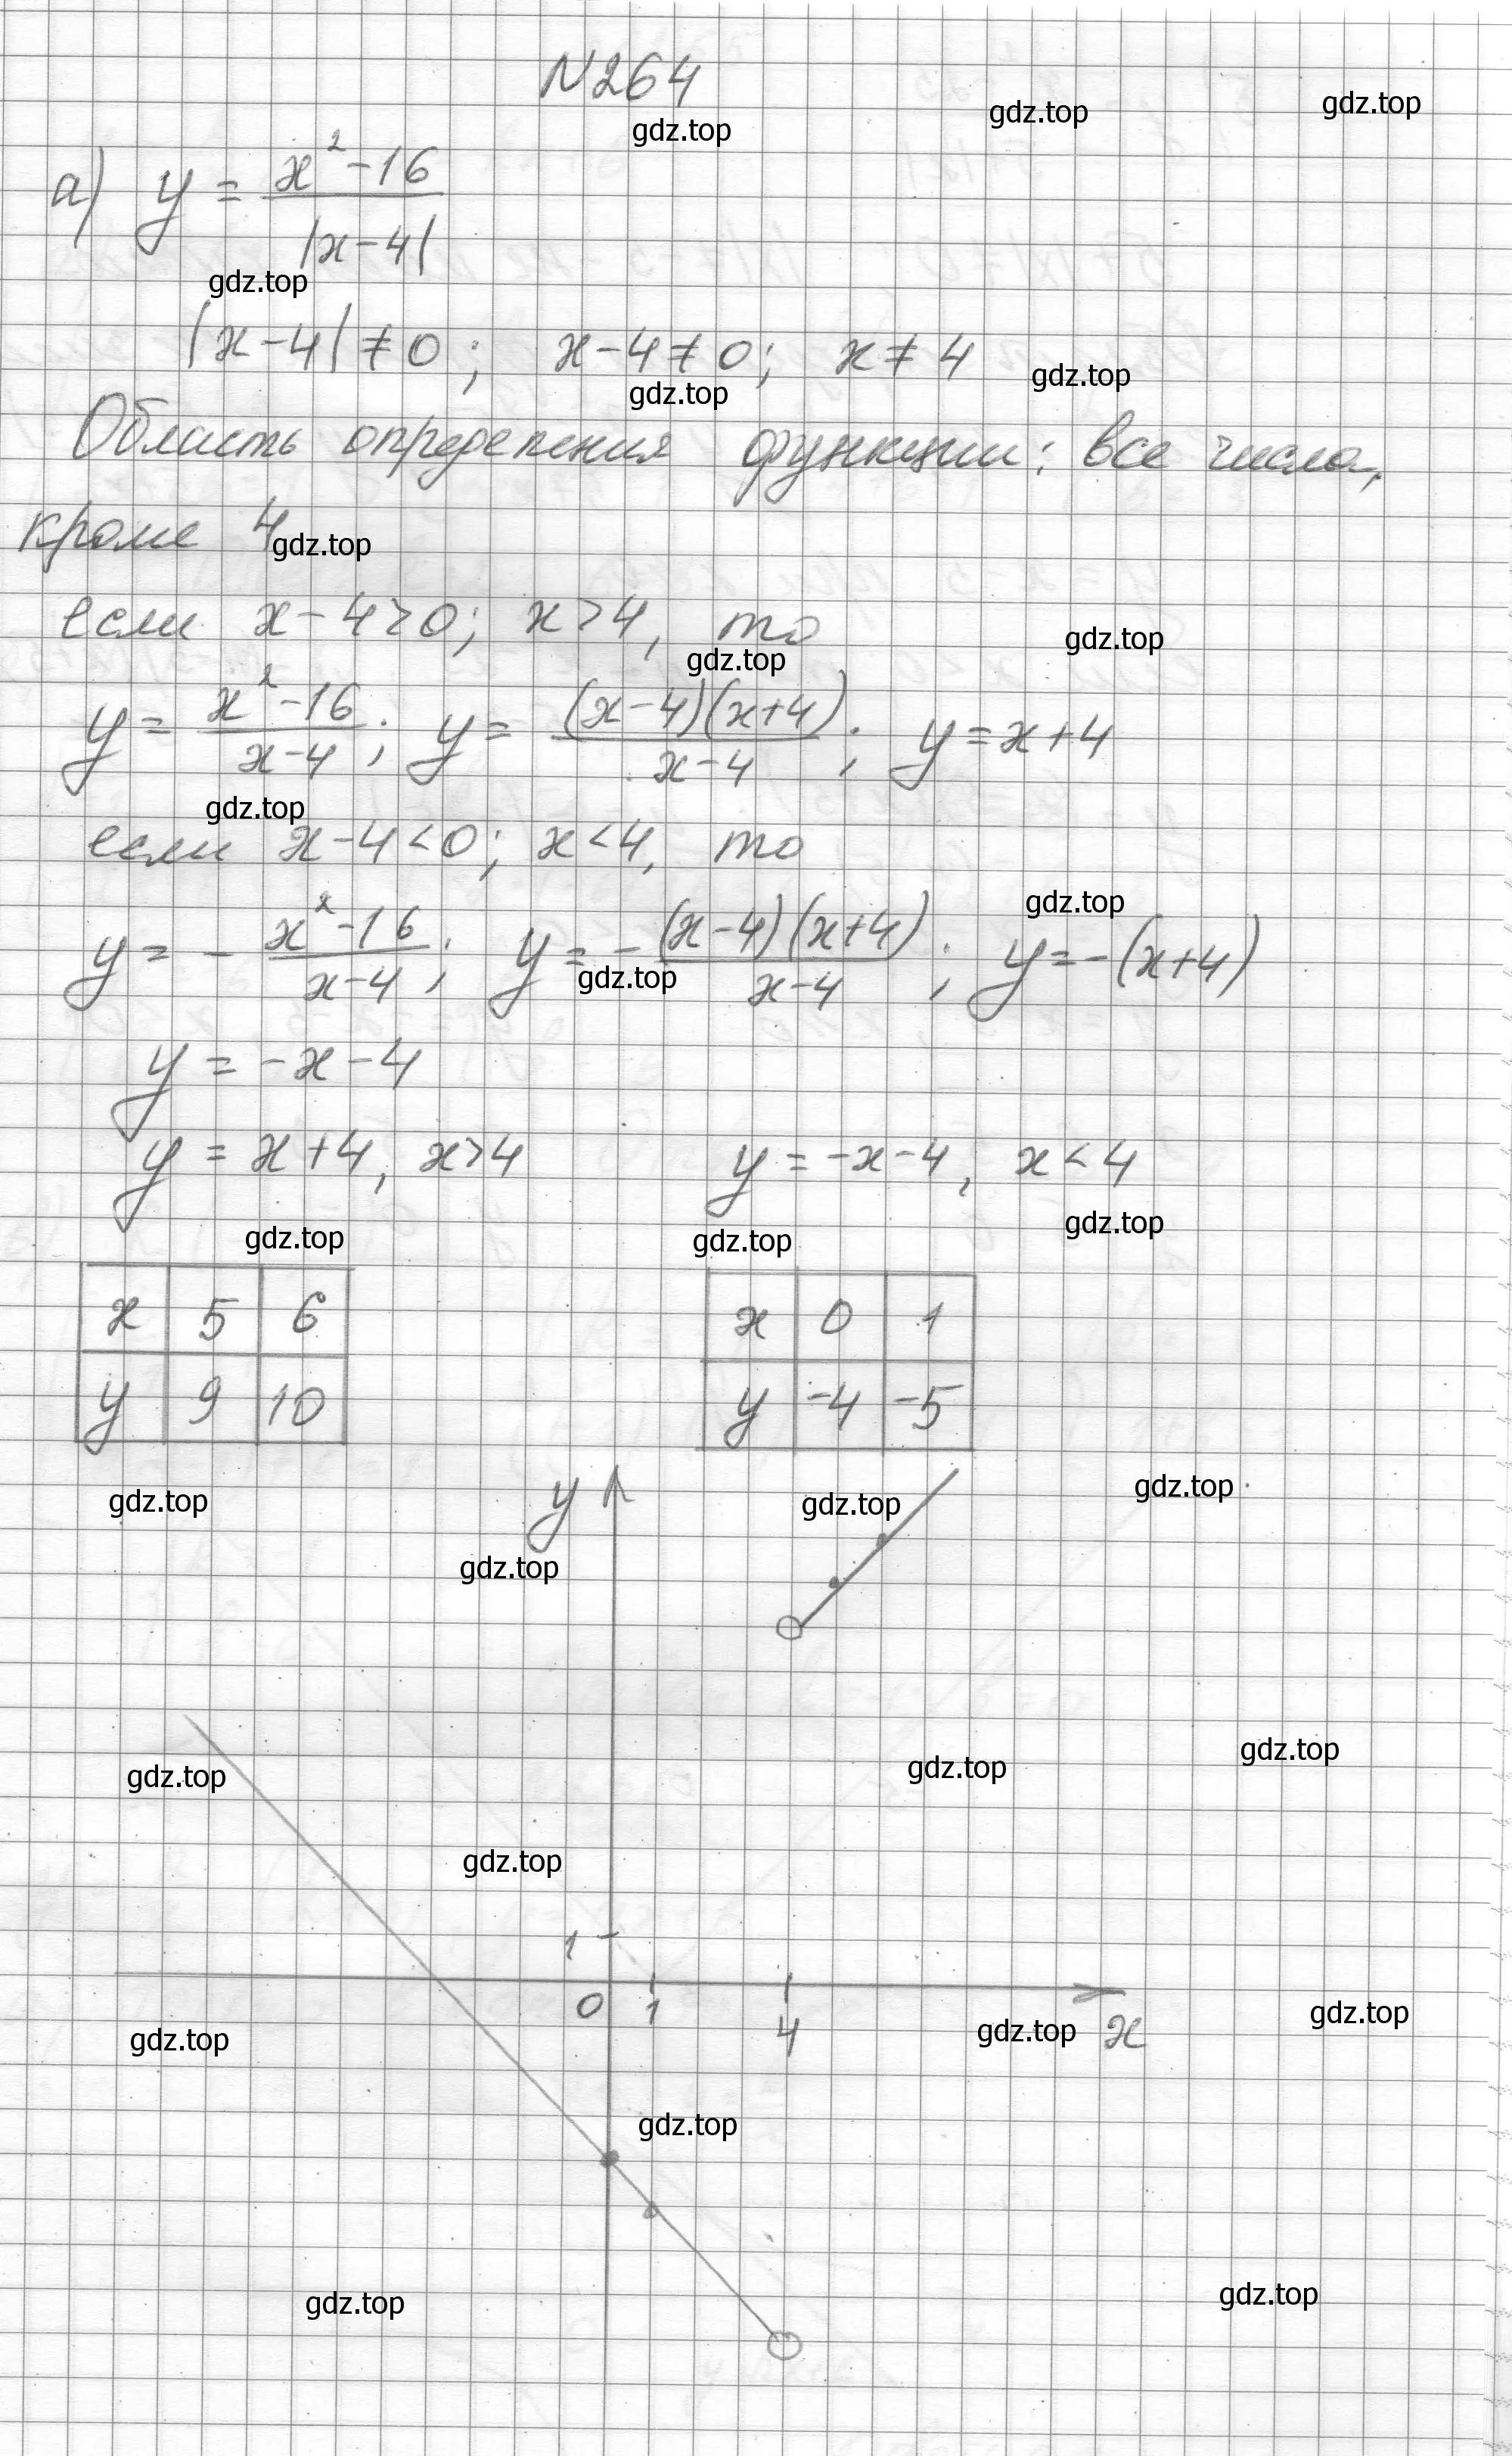 N264
gdz.top gdz.top gdz.top
а) y = (x² - 16) / |x - 4|
gdz.top
|x - 4| ≠ 0; x - 4 ≠ 0; x ≠ 4
gdz.top gdz.top
Область определения функции: все числа,
кроме 4
gdz.top
если x - 4 > 0; x > 4, то
gdz.top gdz.top
y = (x² - 16) / (x - 4); y = (x - 4)(x + 4) / (x - 4); y = x + 4
gdz.top
если x - 4 < 0; x < 4, то
gdz.top
y = - (x² - 16) / (x - 4); y = - (x - 4)(x + 4) / (x - 4); y = -(x + 4)
gdz.top
y = -x - 4
y = x + 4, x > 4 y = -x - 4, x < 4
gdz.top gdz.top gdz.top
x 5 6 x 0 1
y 9 10 y -4 -5
gdz.top y gdz.top gdz.top
gdz.top
gdz.top gdz.top gdz.top
gdz.top
1
0 1 4 x
gdz.top gdz.top gdz.top
gdz.top
gdz.top gdz.top